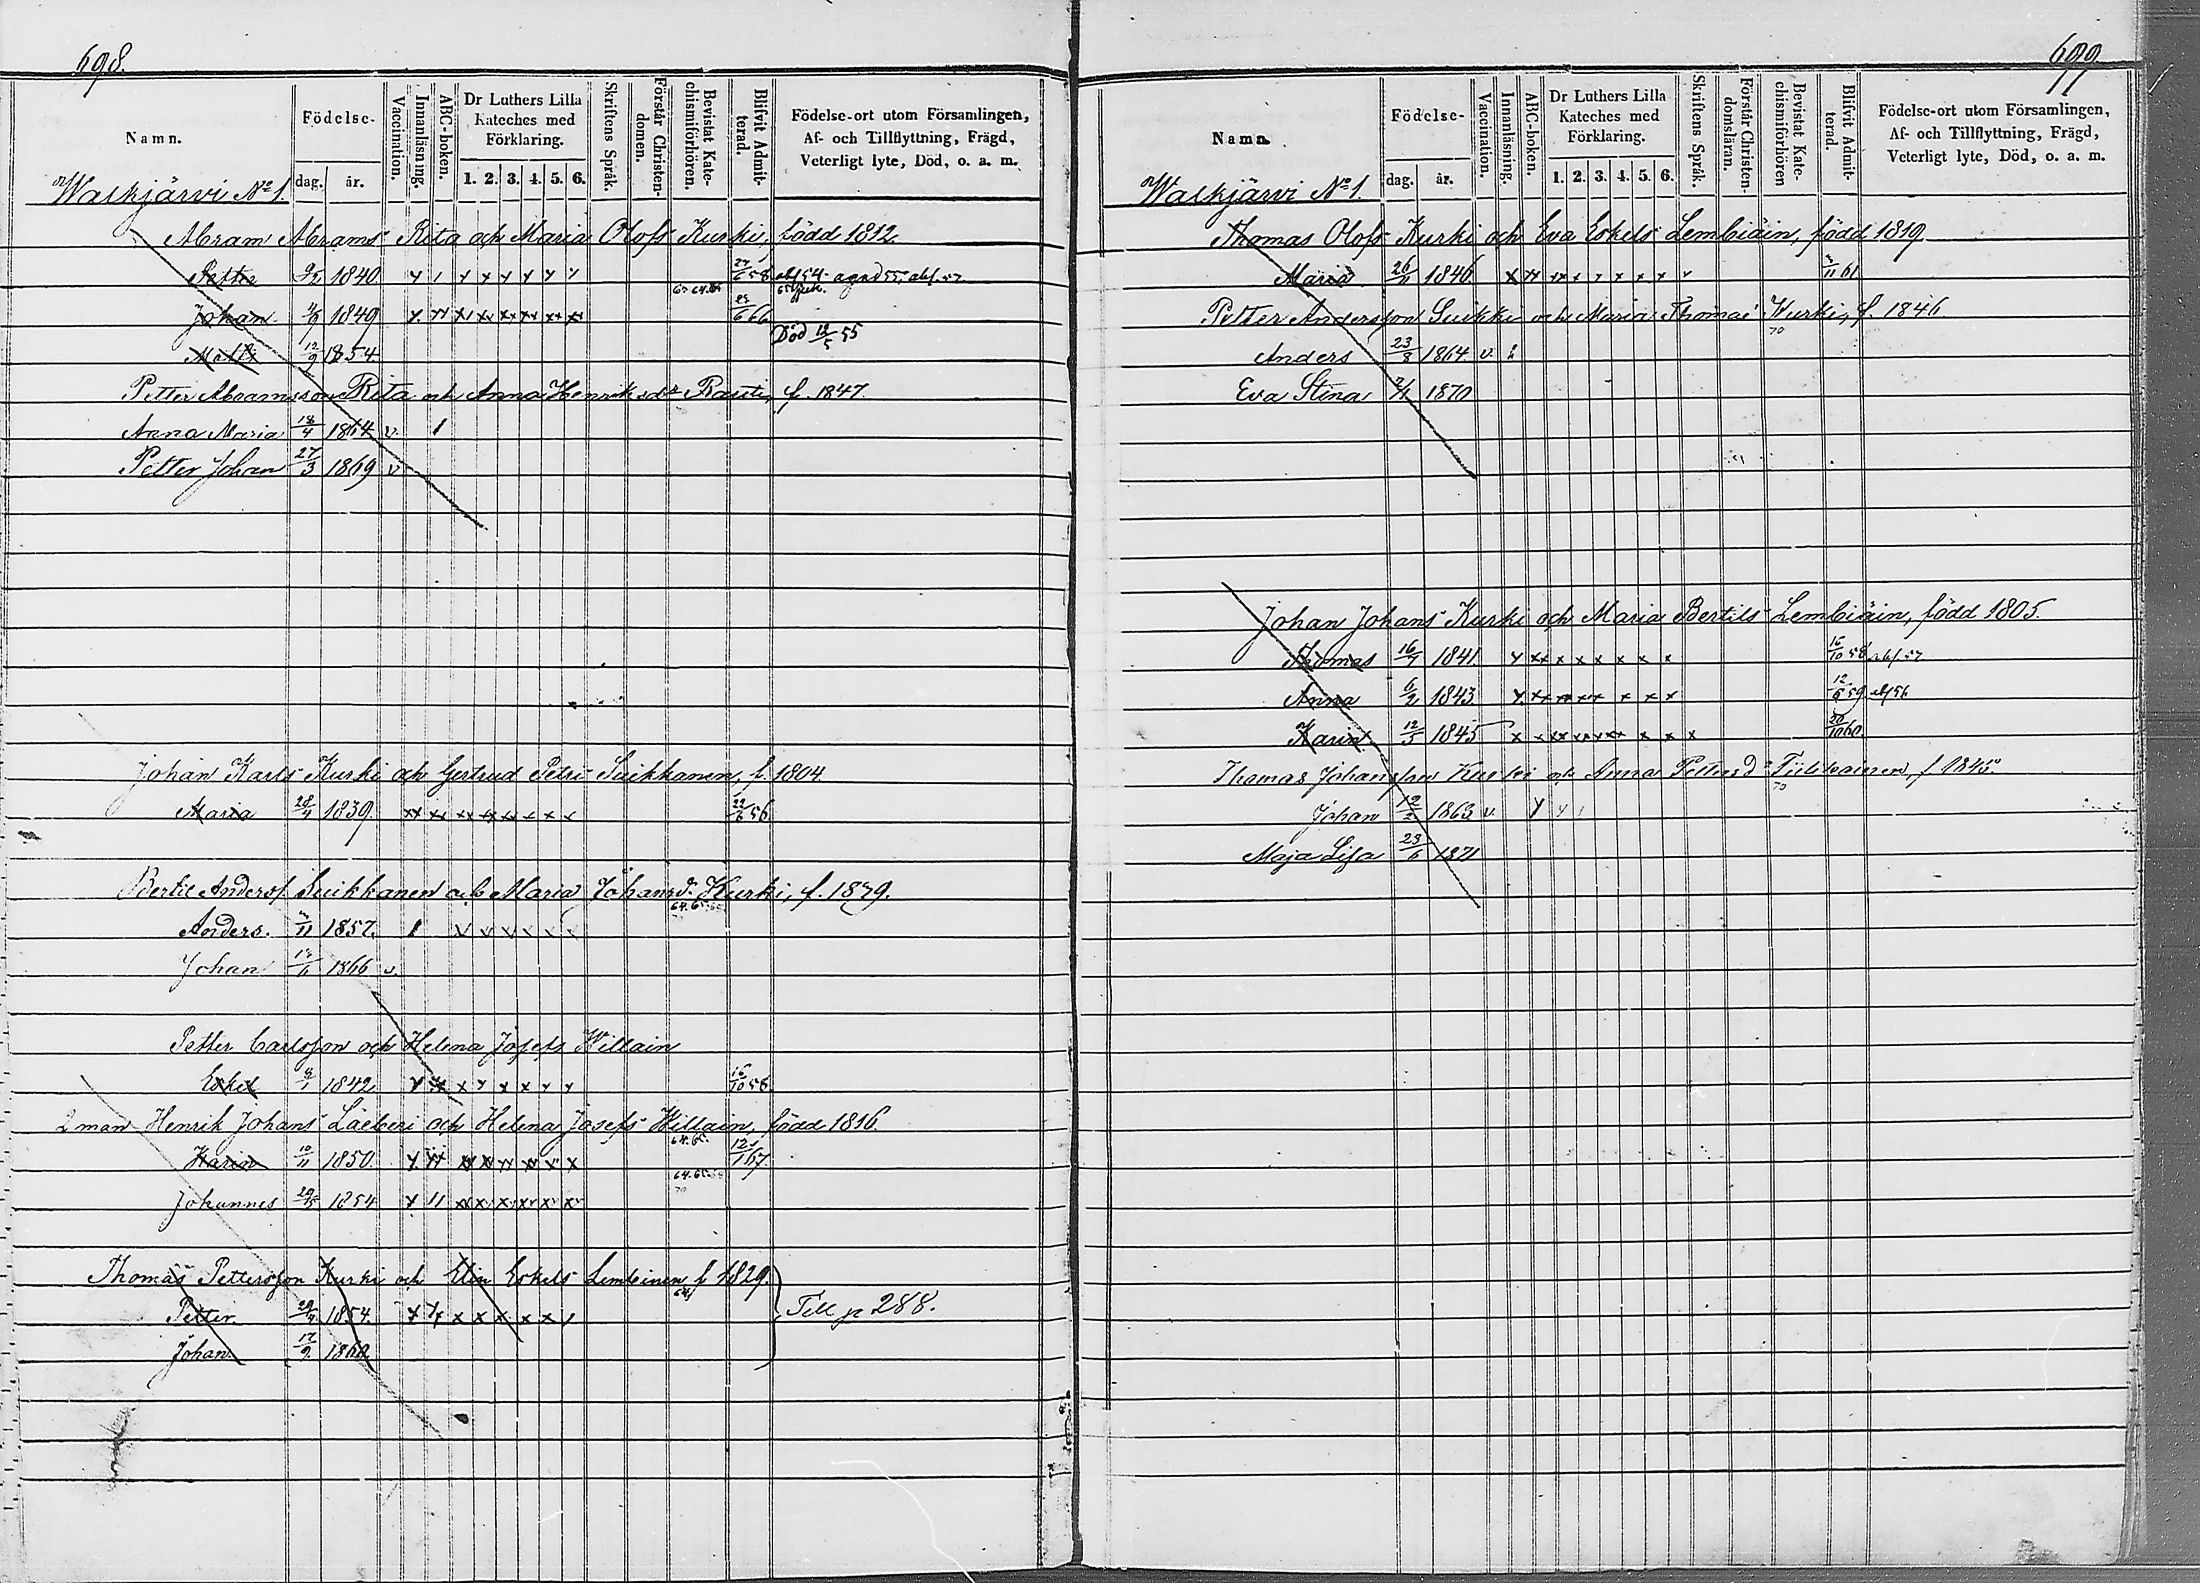 698.
Namn.
Födelse-
dag. år.
Vaccination.
Innanläsning.
ABC-boken.
Dr Luthers Lilla Kateches med Förklaring.
1. 2. 3. 4. 5. 6.
Skriftens Språk.
Förstår Christen-domen.
Bevistat Kate-chismiförhören.
Blifvit Admit-terad.
Födelse-ort utom Församlingen,
Af- och Tillflyttning, Frägd,
Veterligt lyte, Död, o. a. m.
Walkjärvi No 1.
Abram Abrams Rita och Maria Olofs Kurki, född 1812.
Petter 9/2 1840. 27/6 58
Johan 4/9 1849 66
Matts 12/9 1854. Död 12/5 55
Petter Abramsson Rita och Anna Henriksdr Rauti, f. 1847.
Anna Maria 18/4 1864 v.
Petter Johan 27/3 1869 v
Johan Karls Kurki och Gertrud Petri Suikkanen, f. 1804
Maria 28/4 1839. 22/6 56
Bertil Anders. Suikkanen och Maria Johansd. Kurki, f. 1839.
Anders. 1857.
Johan 1866 v.
Petter Carlsson och Helena Josefs Willain
Eskel 1842 16/10 58
2 man Henrik Johans Läeberi och Helena Josefs Willain, född 1816
Karin 10/11 1850. 12/1 67.
Johannes 1854
Thomas Pettersson Kurki och Elin Eskels Lembinen f 1829.
Petter 1854. Till p 288.
Johan 17/9. 1860.
699.
Namn.
Födelse-
dag. år.
Vaccination.
Innanläsning.
ABC-boken.
Dr Luthers Lilla Kateches med Förklaring.
1. 2. 3. 4. 5. 6.
Skriftens Språk.
Förstår Christen-domsläran.
Bevistat Kate-chismiförhören
Blifvit Admit-terad.
Födelse-ort utom Församlingen,
Af- och Tillflyttning, Frägd,
Veterligt lyte, Död, o. a. m.
Walkjärvi No 1.
Thomas Olofs Kurki och Eva Eskels Lembiäin, född 1819
Maria 26/11 1846. 61
Petter Andersson Suikki och Maria Thomae Kurki, f. 1846
Anders 23/8 1864 v.
Eva Stina 1870
Johan Johans Kurki och Maria Bertils Lembiäin, född 1805.
Thomas 16/7 1841 16/10 58 abf. 57
Anna 6/2 1843. 59. abf 56
Karin 12/3 1845 60.
Thomas Johansson Kurki och Anna Pettersdr Tiilikainen, f 1845.
Johan 12/2 1863 v.
Maja Lisa 23/6 1871